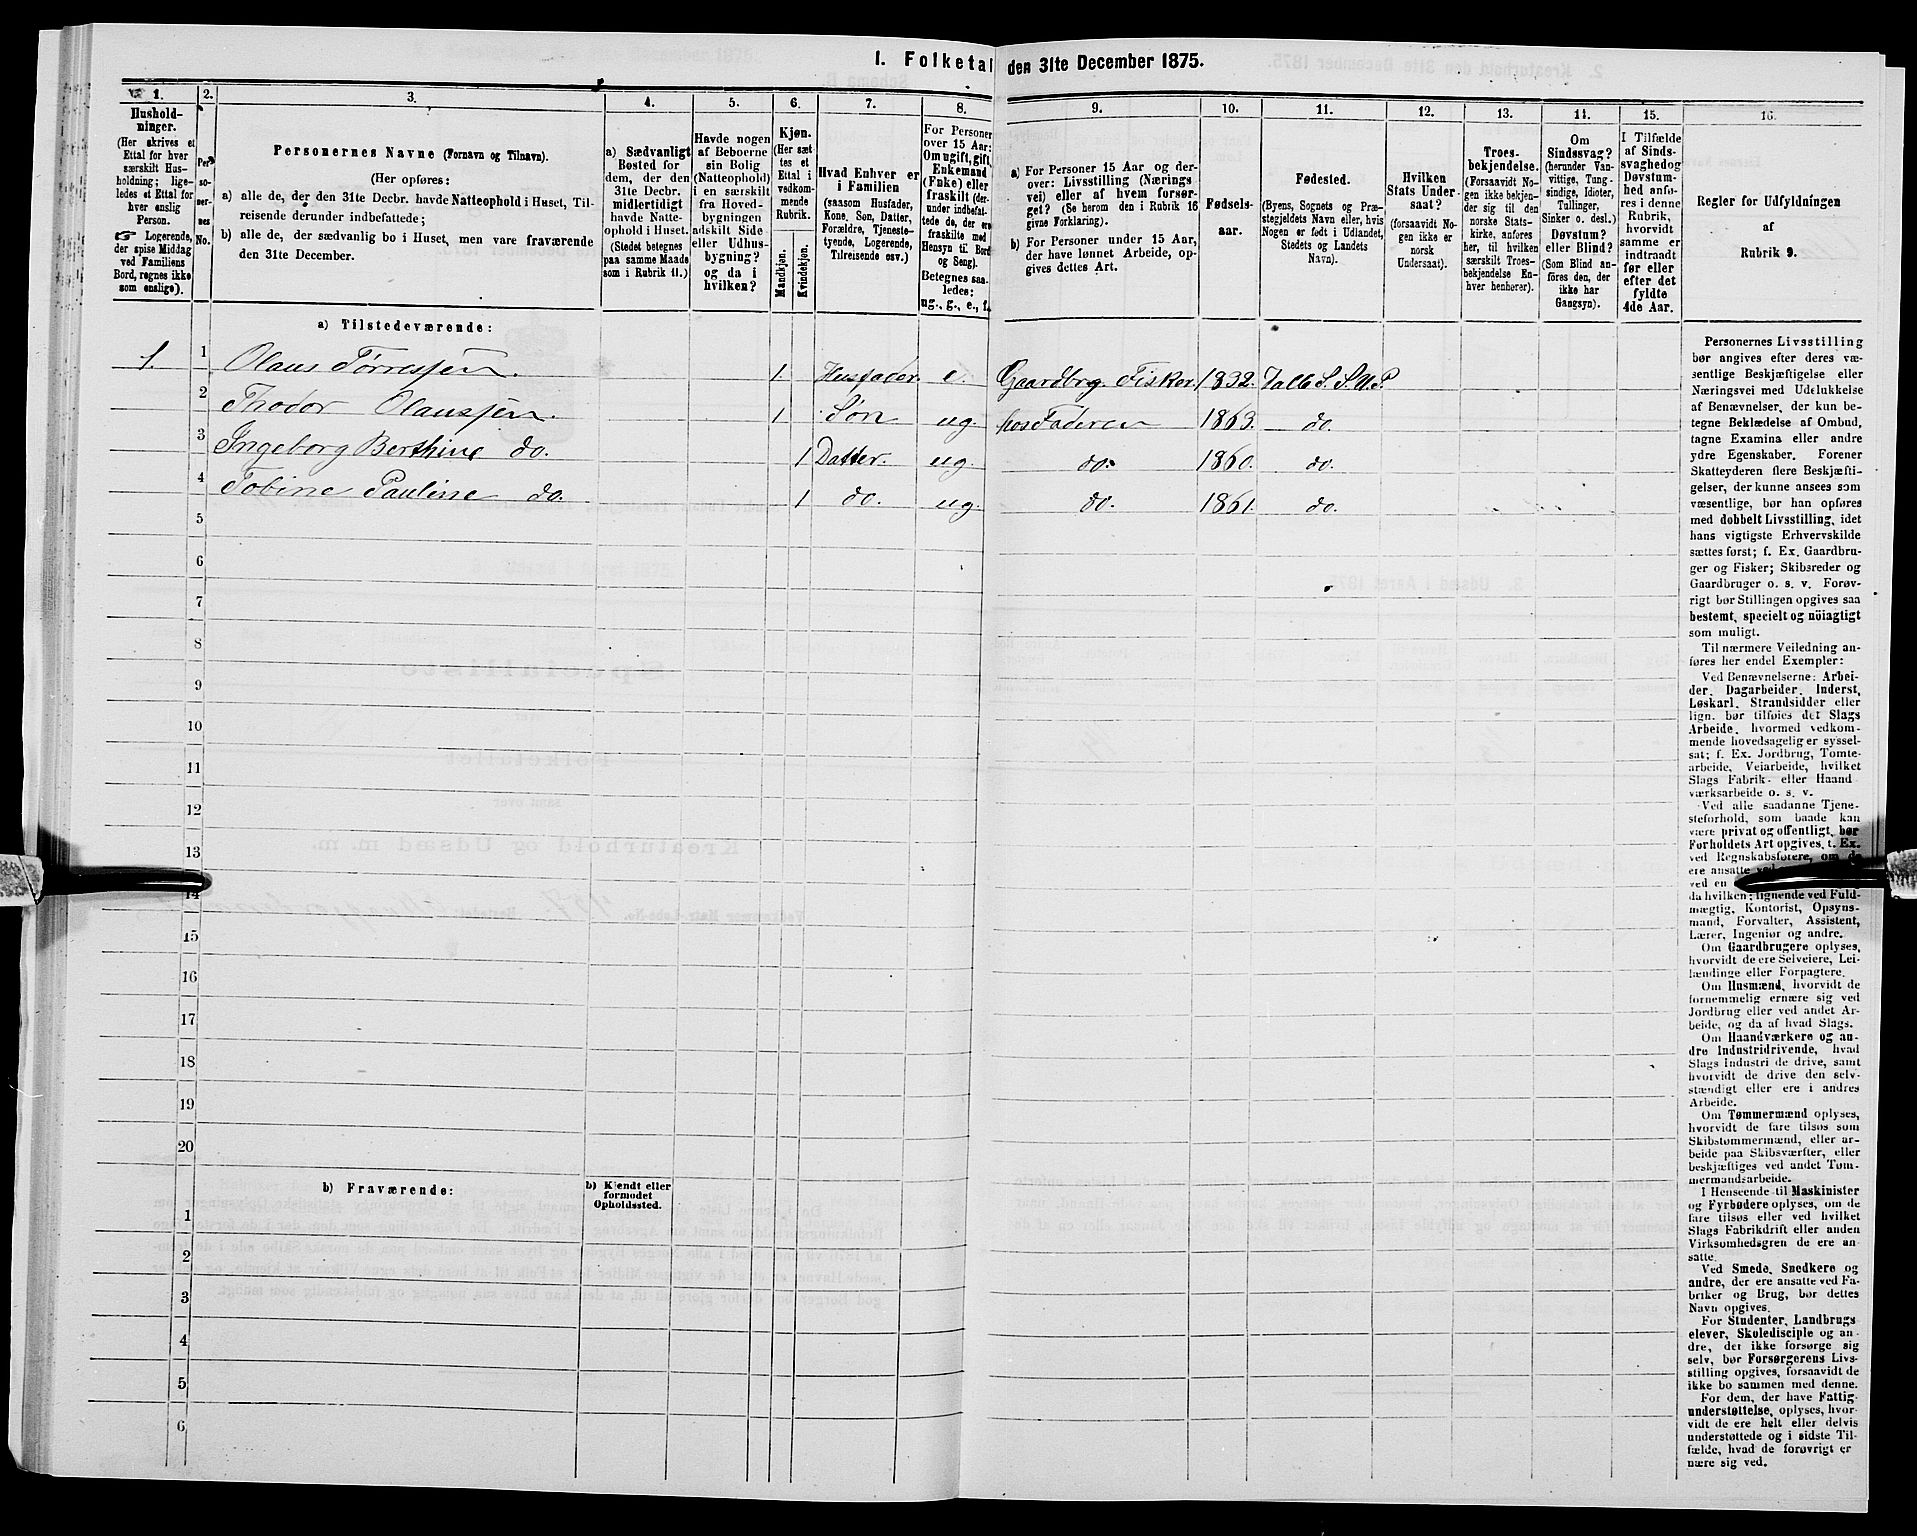 1. Folketal den 31te December 1875.
1.
Hushold-
ninger.
(Her skrives et
Ettal for hver
særskilt Hus-
holdning; lige-
ledes et Ettal for
hver enslig
Person.
☞ Logerende,
der spise Middag
ved Familiens
Bord, regnes ikke
som enslige).
2.
Per-
so-
ner-
nes
No.
3.
Personernes Navne (Fornavn og Tilnavn).
(Her opføres:
a) alle de, der den 31te Decbr. havde Natteophold i Huset, Til-
reisende derunder indbefattede;
b) alle de, der sædvanlig bo i Huset, men vare fraværende
den 31te December.
4.
a) Sædvanligt
Bosted for
dem, der den
31te Decbr.
midlertidigt
havde Natte-
ophold i Huset.
(Stedet betegnes
paa samme Maade
som i Rubrik 11.)
5.
Havde nogen
af Beboerne
sin Bolig
(Natteophold)
i en særskilt
fra Hoved-
bygningen
adskilt Side-
eller Udhus-
bygning?
og da i
hvilken?
6.
Kjøn.
(Her sæt-
tes et
Ettal i
vedkom-
mende
Rubrik.
Mandkjøn.
Kvindekjøn.
7.
Hvad Enhver er
i Familien
(saasom Husfader,
Kone, Søn, Datter,
Forældre, Tjeneste-
tyende, Logerende,
Tilreisende osv.)
8.
For Personer
over 15 Aar:
Om ugift, gift,
Enkemand
(Enke) eller
fraskilt (der-
under indbefat-
tede de, der ere
fraskilte med
Hensyn til Bord
og Seng).
Betegnes saa-
ledes:
ug., g., e., f.
9.
a) For Personer 15 Aar og der-
over: Livsstilling (Nærings-
vei) eller af hvem forsør-
get? (Se herom den i Rubrik 16
givne Forklaring).
b) For Personer under 15 Aar,
der have lønnet Arbeide, op-
gives dettes Art.
10.
Fødsels-
aar.
11.
Fødested.
(Byens, Sognets og Præ-
stegjeldets Navn eller, hvis
Nogen er født i Udlandet,
Stedets og Landets
Navn).
12.
Hvilken
Stats Under-
saat?
(forsaavidt No-
gen ikke er
norsk
Undersaat).
13.
Troes-
bekjendelse.
(Forsaavidt No-
gen ikke bekjen-
der sig til den
norske Stats-
kirke, anføres
her, til hvilken
særskilt Troes-
bekjendelse En-
hver henhører).
14.
Om
Sindssvag?
(herunder Van-
vittige, Tung-
sindige, Idioter,
Tullinger,
Sinker o. desl.)
Døvstum?
eller Blind?
(Som Blind an-
føres den, der
ikke har
Gangsyn).
15.
I Tilfælde
af Sinds-
svaghed og
Døvstum-
hed anfø-
res i denne
Rubrik,
hvorvidt
samme er
indtraadt
før eller
efter det
fyldte
4de Aar.
16.
Regler for Udfyldningen
af
Rubrik 9.
a) Tilstedeværende:
1. 1 Olaus Tørressen. 1. Husfader. e. Gaardbrg. Fisker. 1832. Valle S. S. U. P.
2 Thodor Olaussen. 1 Søn ug. hos Faderen 1863. do.
3 Ingeborg Berthine do. 1 Datter. ug. do. 1860. do.
4 Tobine Pauline do. 1 do. ug. do. 1861. do.
5
6
7
8
9
10
11
12
13
14
15
16
17
18
19
20
b) Fraværende:
b) Kjendt eller
formodet
Opholdssted.
1
2
3
4
5
6
Personernes Livsstilling
bør angives efter deres væ-
sentlige Beskjæftigelse eller
Næringsvei med Udelukkelse
af Benævnelser, der kun be-
tegne Beklædelse af Ombud,
tagne Examina eller andre
ydre Egenskaber. Forener
Skatteyderen flere Beskjæfti-
gelser, der kunne ansees som
væsentlige, bør han opføres
med dobbelt Livsstilling, idet
hans vigtigste Erhvervskilde
sættes først; f. Ex. Gaardbru-
ger og Fisker; Skibsreder og
Gaardbruger o. s. v. Forøv-
rigt bør Stillingen opgives saa
bestemt, specielt og nöiagtigt
som muligt.
Til nærmere Veiledning an-
føres her endel Exempler:
Ved Benævnelserne: Arbei-
der, Dagarbeider, Inderst,
Løskarl, Strandsidder eller
lign. bør tilføies det Slags
Arbeide, hvormed vedkom-
mende hovedsagelig er syssel-
sat; f. Ex. Jordbrug, Tomte-
arbeide, Veiarbeide, hvilket
Slags Fabrik- eller Haand-
værksarbeide o. s. v.
Ved alle saadanne Tjene-
steforhold, som baade kan
være privat og offentligt, bør
Forholdets Art opgives, f. Ex.
ved Regnskabsførere, om de
ere ansatte ved
ved en
da hvilken; lignende ved Fuld-
mægtig, Kontorist, Opsyns-
mand, Forvalter, Assistent,
Lærer, Ingeniør og andre.
Om Gaardbrugere oplyses,
hvorvidt de ere Selveiere, Lei-
lændinge eller Forpagtere.
Om Husmænd, hvorvidt de
fornemmelig ernære sig ved
Jordbrug eller ved andet Ar-
beide, og da af hvad Slags.
Om Haandværkere og an-
dre Industridrivende, hvad
Slags Industri de drive, samt
hvorvidt de drive den selv-
stændigt eller ere i andres
Arbeide.
Om Tømmermænd oplyses,
hvorvidt de fare tilsøs som
Skibstømmermænd, eller ar-
beide paa Skibsværfter, eller
beskjæftiges ved andet Tøm-
mermandsarbeide.
I Henseende til Maskinister
og Fyrbødere oplyses, om de
fare tilsøs eller ved hvilket
Slags Fabrikdrift eller anden
Virksomhedsgren de ere an-
satte.
Ved Smede, Snedkere og
andre, der ere ansatte ved Fa-
briker og Brug, bør dettes
Navn opgives.
For Studenter, Landbrugs-
elever, Skoledisciple og an-
dre, der ikke forsørge sig
selv, bør Forsørgerens Livs-
stilling opgives, forsaavidt de
ikke bo sammen med denne.
For dem, der have Fattig-
understøttelse, oplyses, hvor-
vidt de ere helt eller delvis
understøttede og i sidste Til-
fælde, hvad de forøvrigt er-
nære sig ved.